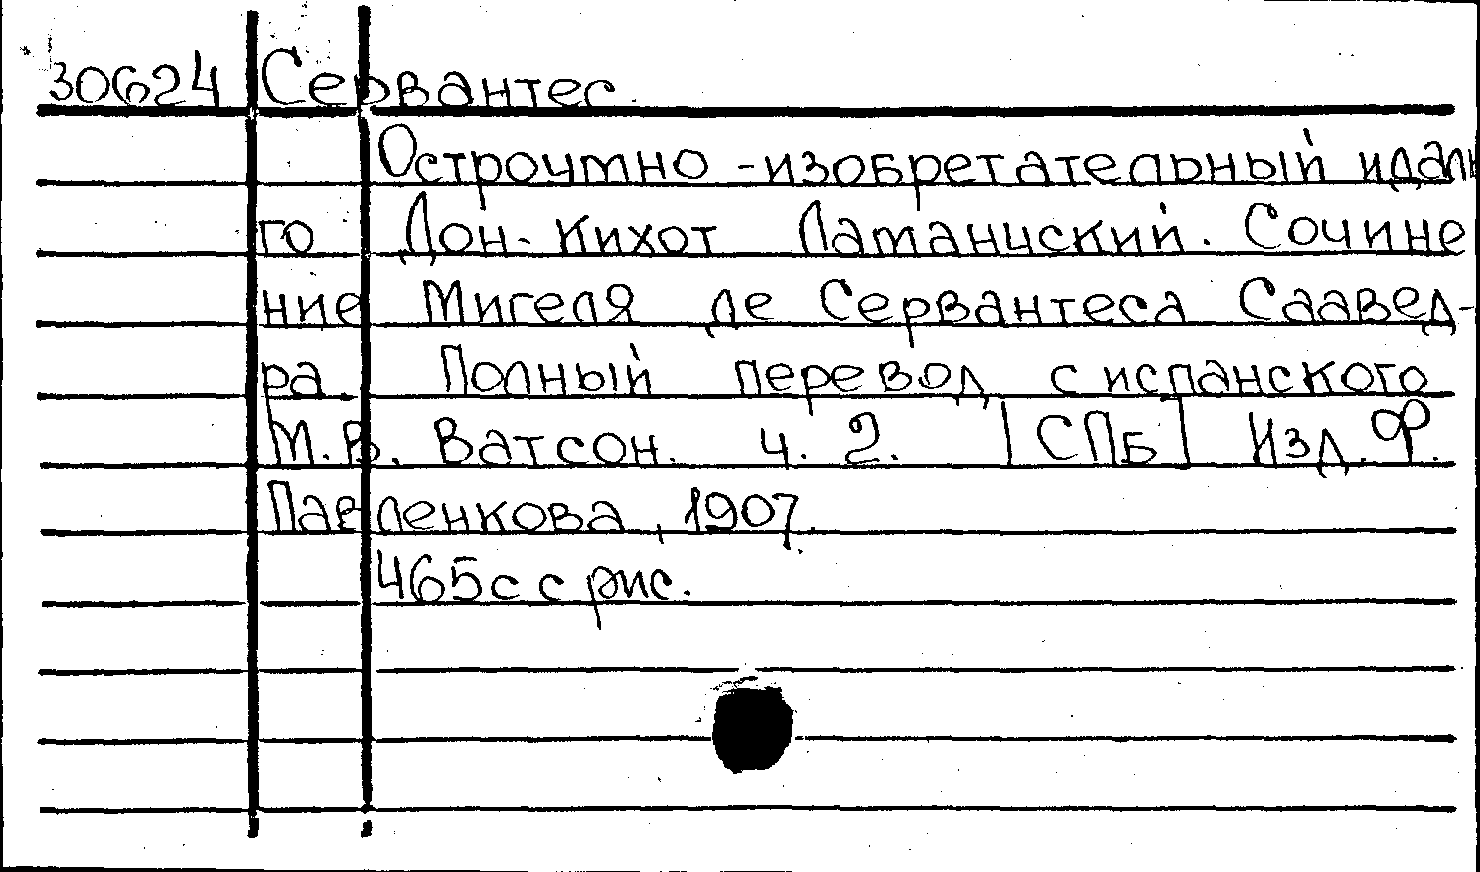 30624 Сервантес.
Остроумно-изобретательный идаль
го Дон-Кихот Ламанчский. Сочине
ние Мигеля де Сервантеса Саавед-
ра. Полный перевод с испанского
М.В. Ватсон. ч. 2. [СПБ] Изд. Ф.
Павленкова, 1907.
465с с рис.